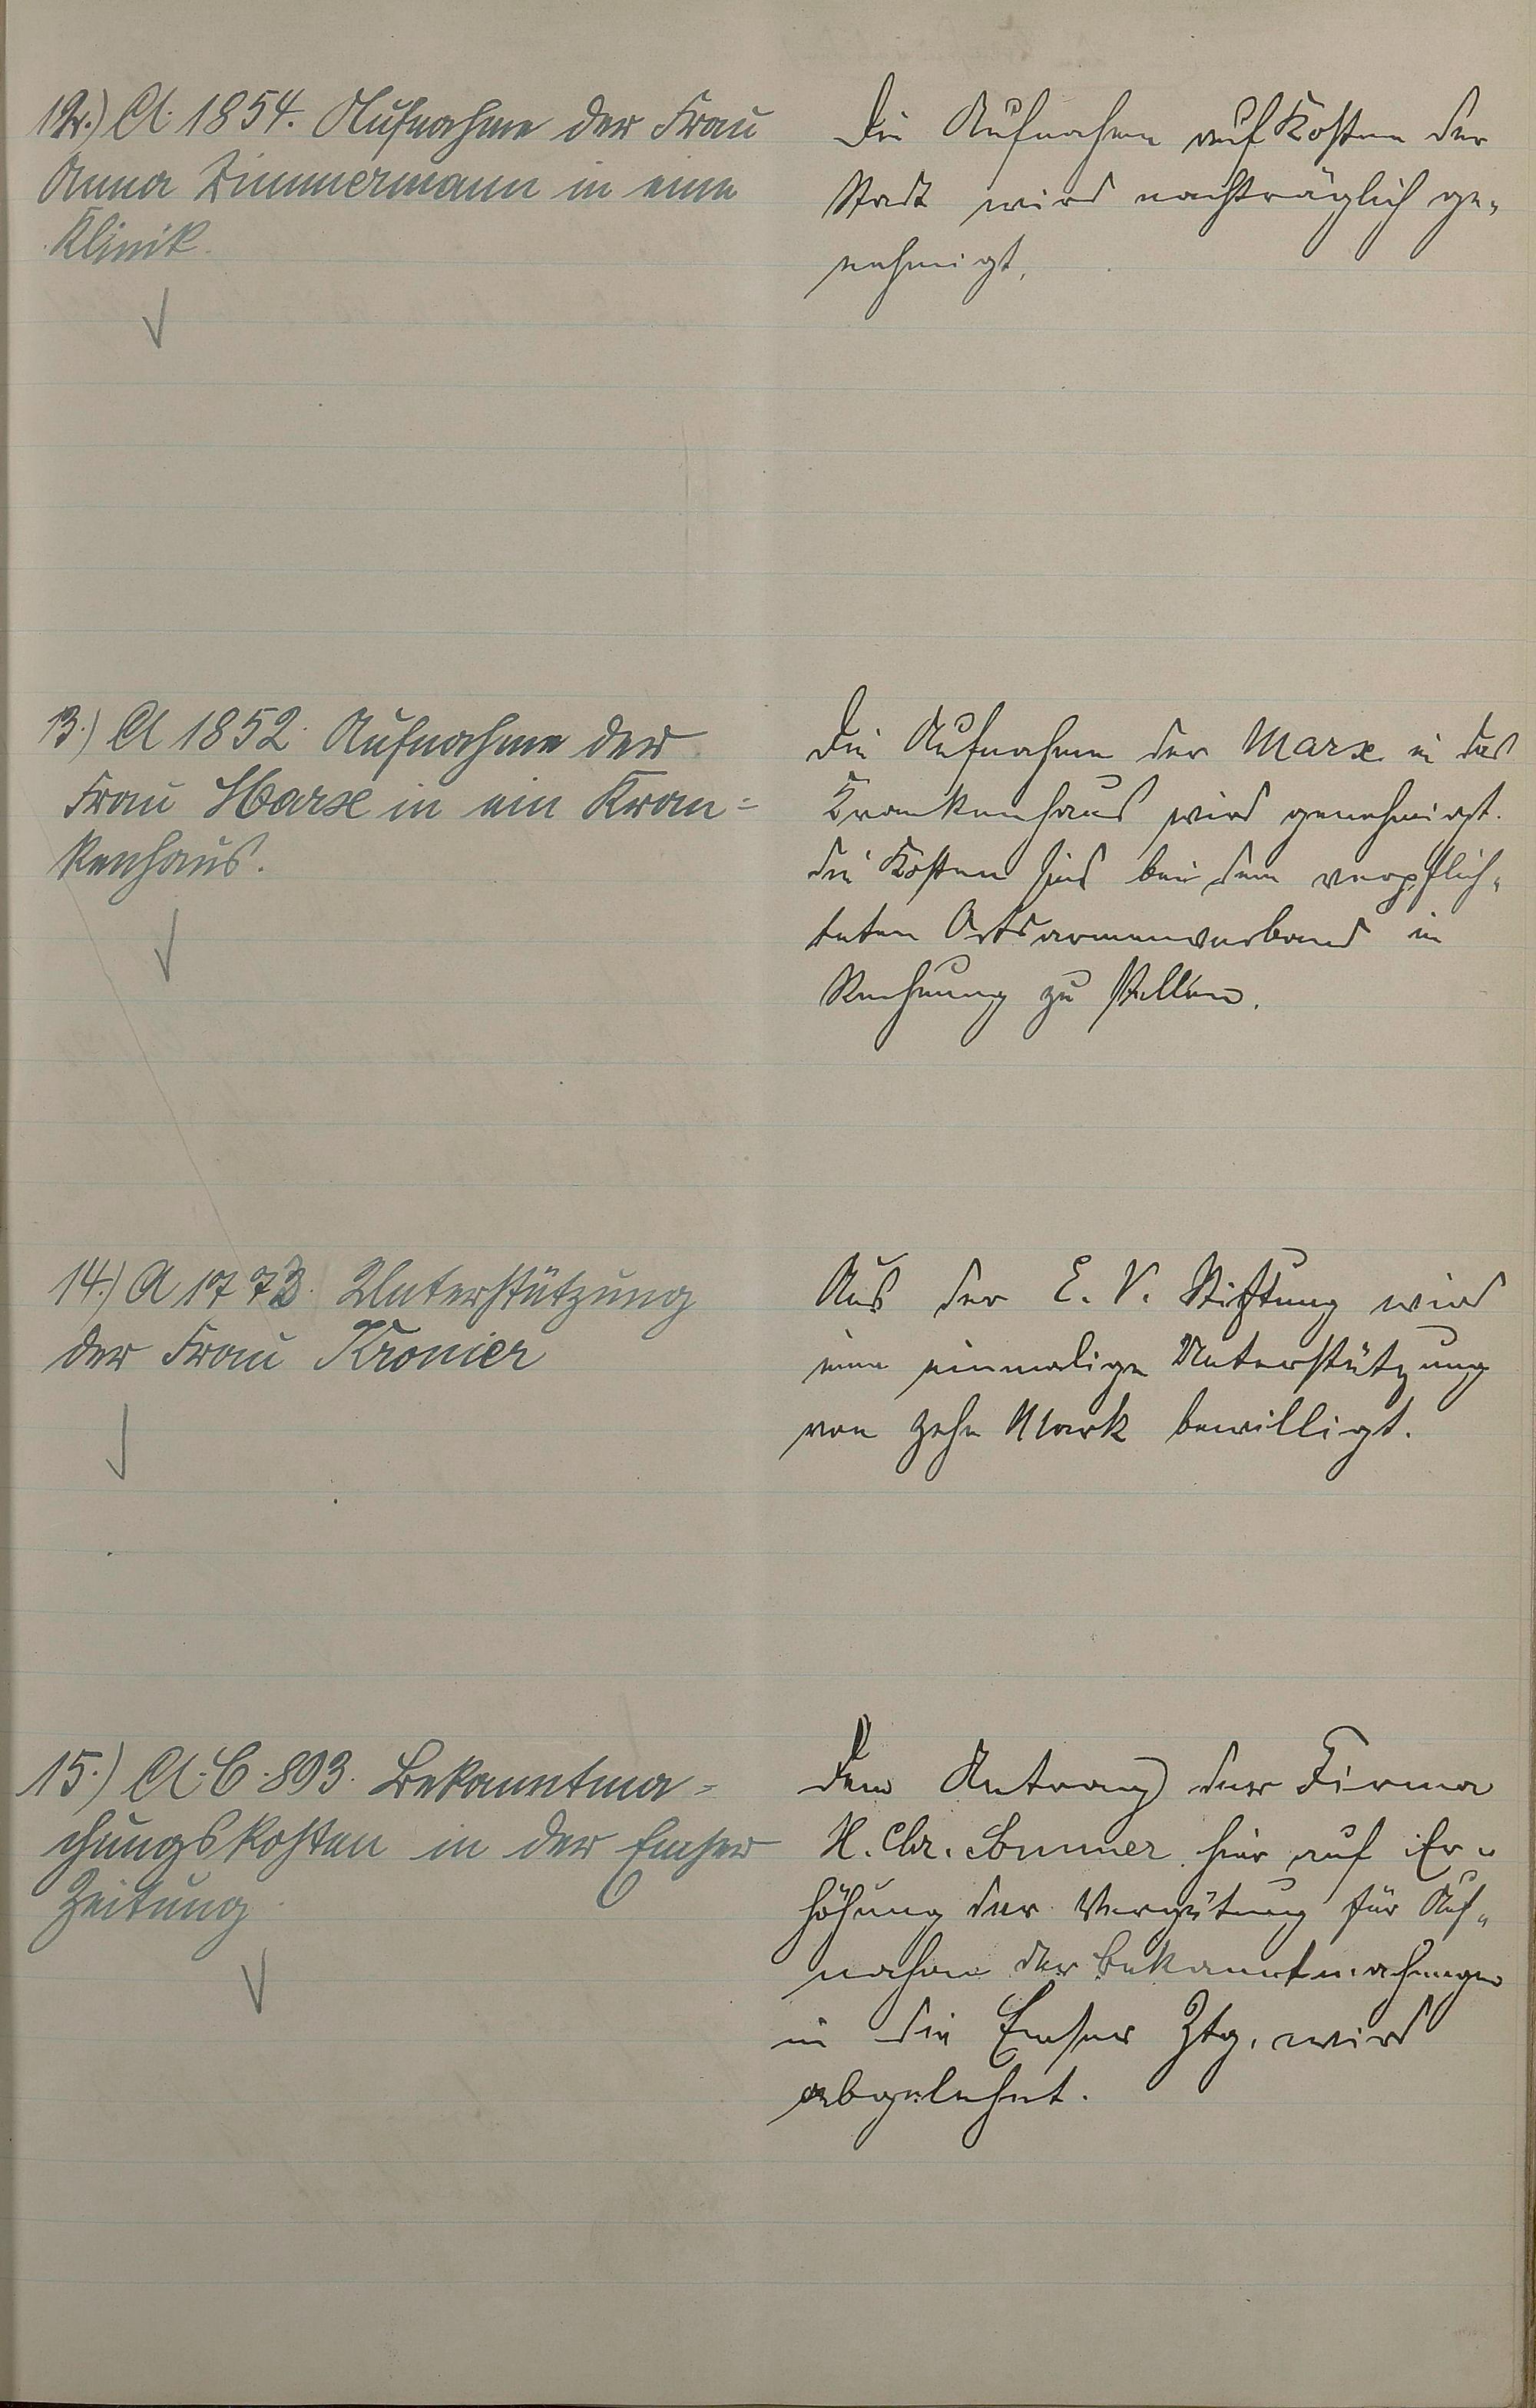 12.) A. 1854. Aufnahme der Frau
Anna Zimmermann in eine
Klinik.
Die Aufnahme auf Kosten der
Stadt wird nachträglich ge-
nehmigt.
13.) A 1852. Aufnahme der
Frau Marx in ein Kran=
kenhaus.
Die Aufnahme der Marx in das
Krankenhaus wird genehmigt.
Die Kosten sind bei dem verpflich-
teten Ortsarmenverband in
Rechnung zu stellen.
14.) A 1773. Unterstützung
der Frau Kronier
Aus der E. V. Stiftung wird
eine einmalige Unterstützung
von zehn Mark bewilligt.
15.) A. C. 893. Bekanntma=
chungskosten in der Emser
Zeitung
Dem Antrag der Firma
H. Chr. Sommer hier auf Er-
höhung der Vergütung für Auf-
nahme der Bekanntmachungen
in die Emser Ztg. wird
abgelehnt.